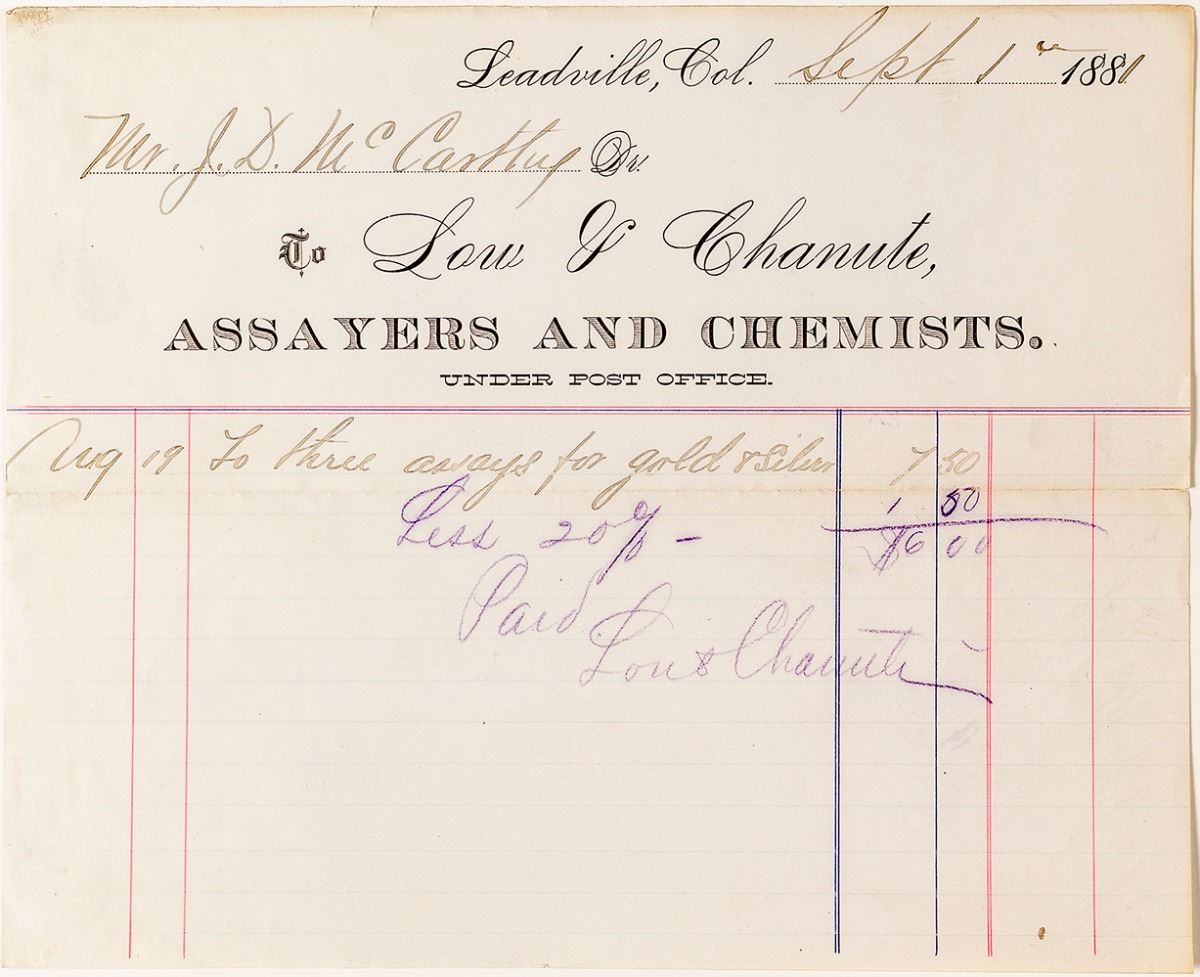 Leadville, Col. Sept 1st 1881
Mr. J. D. McCarthy Dr.
To Low & Chanute,
ASSAYERS AND CHEMISTS.
UNDER POST OFFICE.
Aug 19 To three assays for gold & Silver 7 50
Less 20% - 1 50
$6 00
Paid
Low & Chanute